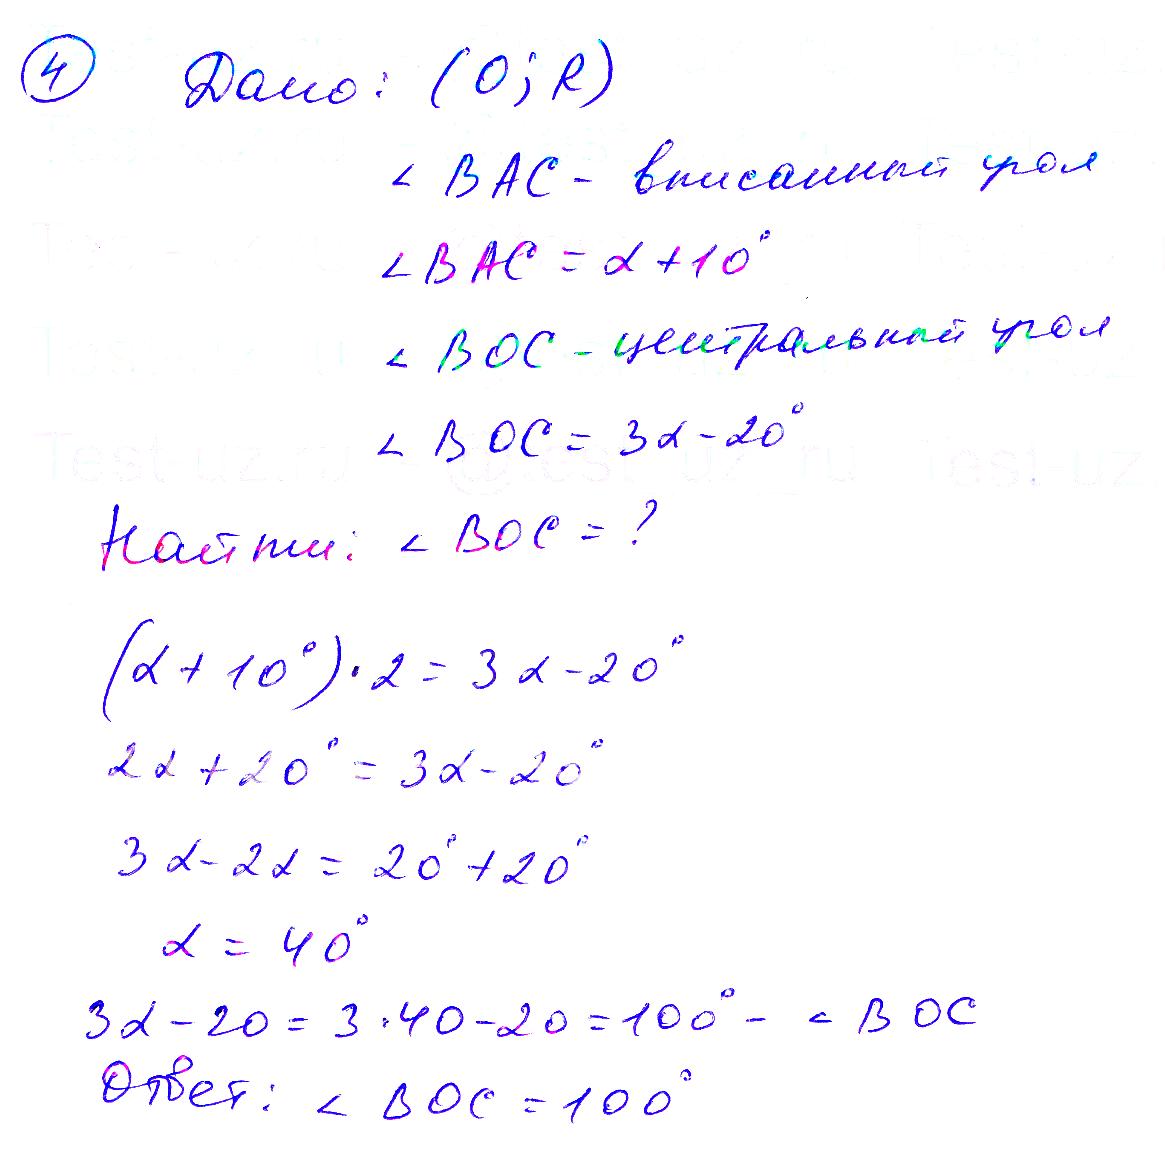 4 Дано: (O; R)
< BAC - вписанный угол
< BAC = α + 10°
< BOC - центральный угол
< BOC = 3α - 20°
Найти: < BOC = ?
(α + 10°) · 2 = 3α - 20°
2α + 20° = 3α - 20°
3α - 2α = 20° + 20°
α = 40°
3α - 20 = 3 · 40 - 20 = 100° - < BOC
Ответ: < BOC = 100°